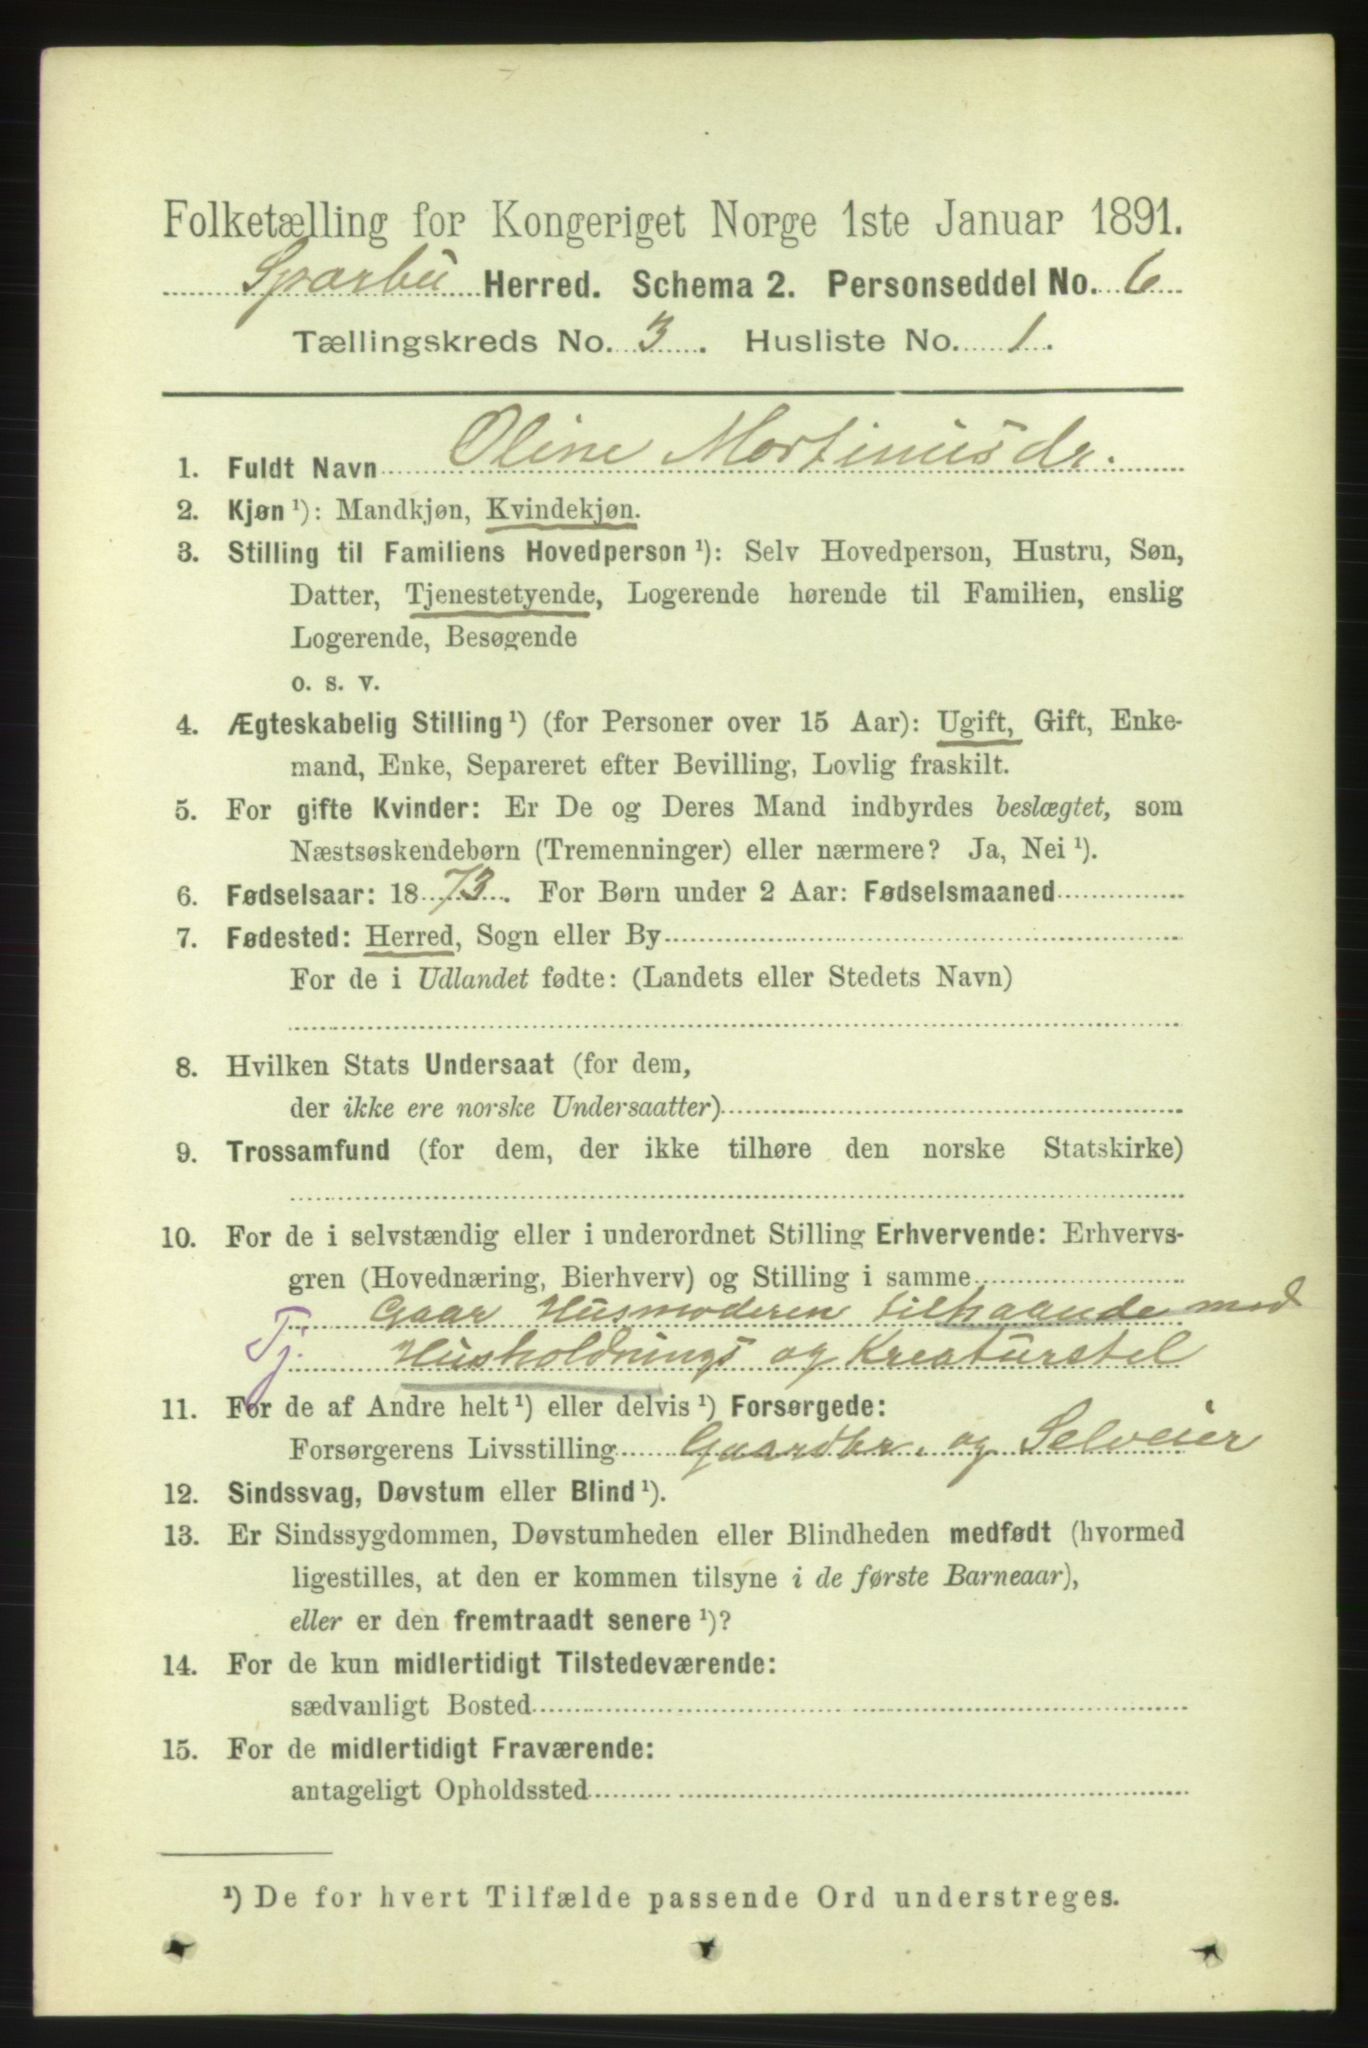 Folketælling for Kongeriget Norge 1ste Januar 1891.
Sparbu Herred. Schema 2. Personseddel No. 6
Tællingskreds No. 3. Husliste No. 1.
1. Fuldt Navn Oline Martinusdr.
2. Kjøn ¹): Mandkjøn, Kvindekjøn.
3. Stilling til Familiens Hovedperson ¹): Selv Hovedperson, Hustru, Søn,
Datter, Tjenestetyende, Logerende hørende til Familien, enslig
Logerende, Besøgende
o. s. v.
4. Ægteskabelig Stilling ¹) (for Personer over 15 Aar): Ugift, Gift, Enke-
mand, Enke, Separeret efter Bevilling, Lovlig fraskilt.
5. For gifte Kvinder: Er De og Deres Mand indbyrdes beslægtet, som
Næstsøskendebørn (Tremenninger) eller nærmere? Ja, Nei ¹).
6. Fødselsaar: 1873. For Børn under 2 Aar: Fødselsmaaned
7. Fødested: Herred, Sogn eller By
For de i Udlandet fødte: (Landets eller Stedets Navn)
8. Hvilken Stats Undersaat (for dem,
der ikke ere norske Undersaatter)
9. Trossamfund (for dem, der ikke tilhøre den norske Statskirke)
10. For de i selvstændig eller i underordnet Stilling Erhvervende: Erhvervs-
gren (Hovednæring, Bierhverv) og Stilling i samme
Gaar Husmoderen tilhaande med
Tj. Husholdnings og Kreaturstel
11. For de af Andre helt ¹) eller delvis ¹) Forsørgede:
Forsørgerens Livsstilling Gaardbr. og Selveier
12. Sindssvag, Døvstum eller Blind ¹).
13. Er Sindssygdommen, Døvstumheden eller Blindheden medfødt (hvormed
ligestilles, at den er kommen tilsyne i de første Barneaar),
eller er den fremtraadt senere ¹)?
14. For de kun midlertidigt Tilstedeværende:
sædvanligt Bosted
15. For de midlertidigt Fraværende:
antageligt Opholdssted
¹) De for hvert Tilfælde passende Ord understreges.